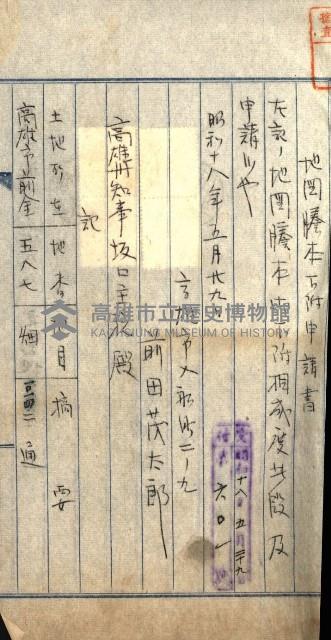 地圖謄本下附申請書
左記ノ地圖謄本下附相成度此段及
申請候也
昭和十八年五月廿九日
高雄市入船町二ノ九
前田茂太郎
高雄州知事坂口主税殿
記
土地所在 地番 地目 摘要
高雄市前金 五八七 畑 二通
昭和十八.五.二十九
六〇一
高雄市立歷史博物館
KAOHSIUNG MUSEUM OF HISTORY